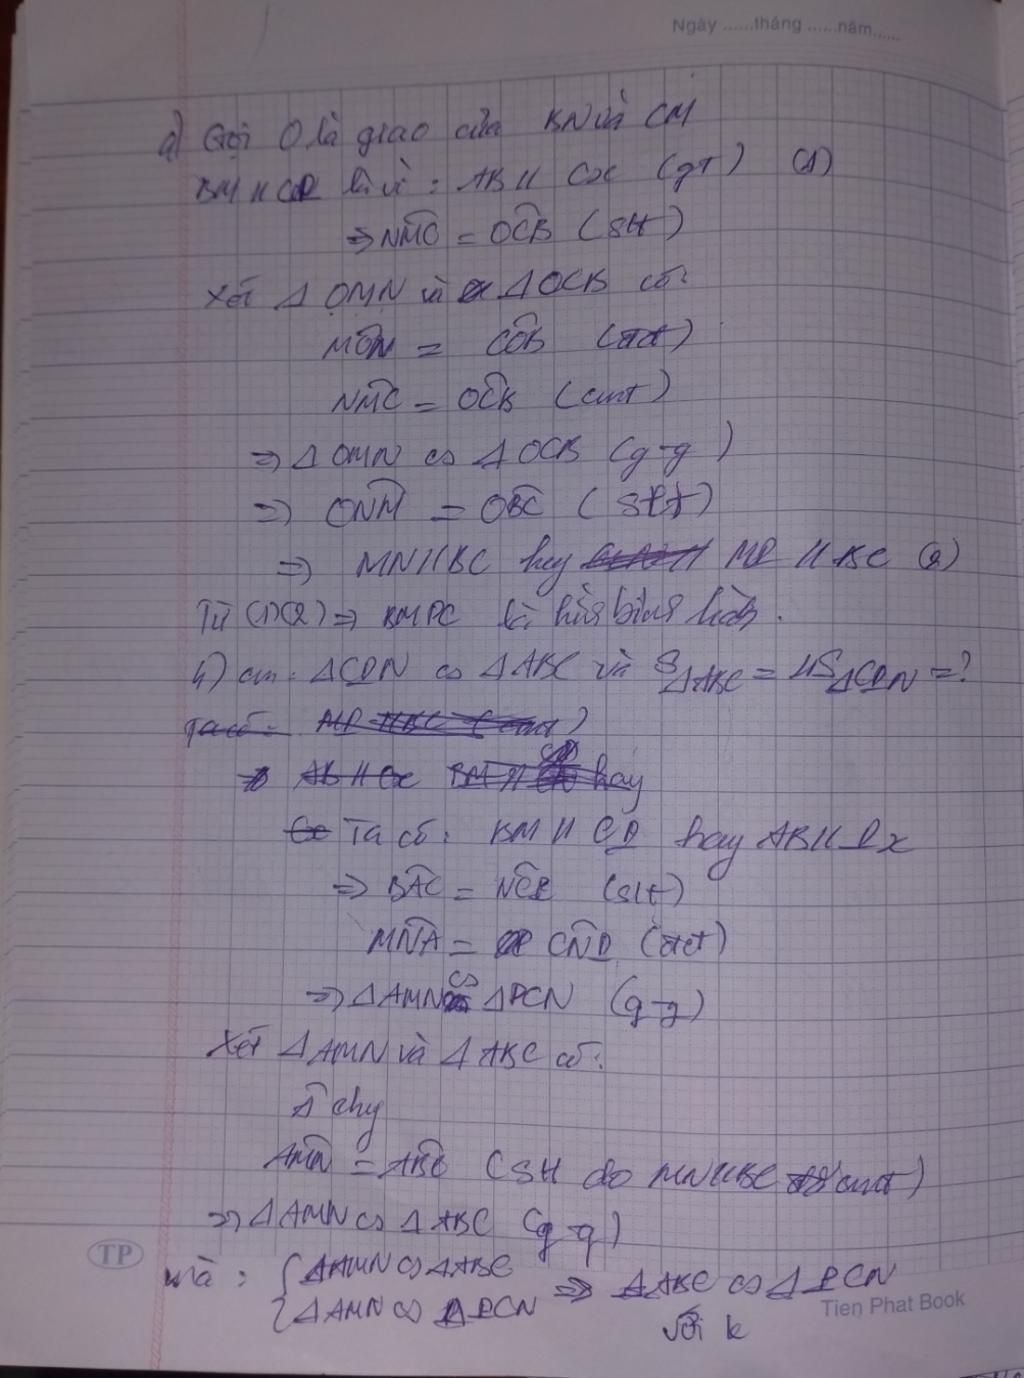 Ngày ......tháng ......năm......
a) Gọi O là giao của BN và CM
BM // CP là vì : AB // Cx (gt) (1)
=> NMO = OCB (slt)
Xét Δ OMN và Δ OCB có:
MON = COB (đđ)
NMC = OCB (cmt)
=> Δ OMN ∽ Δ OCB (g-g)
=> ONM = OBC (slt)
=> MN // BC hay MP // BC (2)
Từ (1)(2) => BMPC là hình bình hành.
b) cm: ΔCPN ∽ ΔABC và SΔABC = 4SΔCPN = ?
Ta có: MP // BC (cmt)
=> AB // Cx BM // hay
Ta có: BM // CP hay AB // Px
=> BAC = NCP (slt)
MNA = CNP (đđ)
=> ΔAMN ∽ ΔPCN (g-g)
Xét ΔAMN và ΔABC có:
A chg
AMN = ABC (slt do MN // BC cmt)
=> ΔAMN ∽ ΔABC (g-g)
mà : { ΔAMN ∽ ΔABC
{ ΔAMN ∽ ΔPCN => ΔABC ∽ ΔPCN
với k
TP
Tien Phat Book